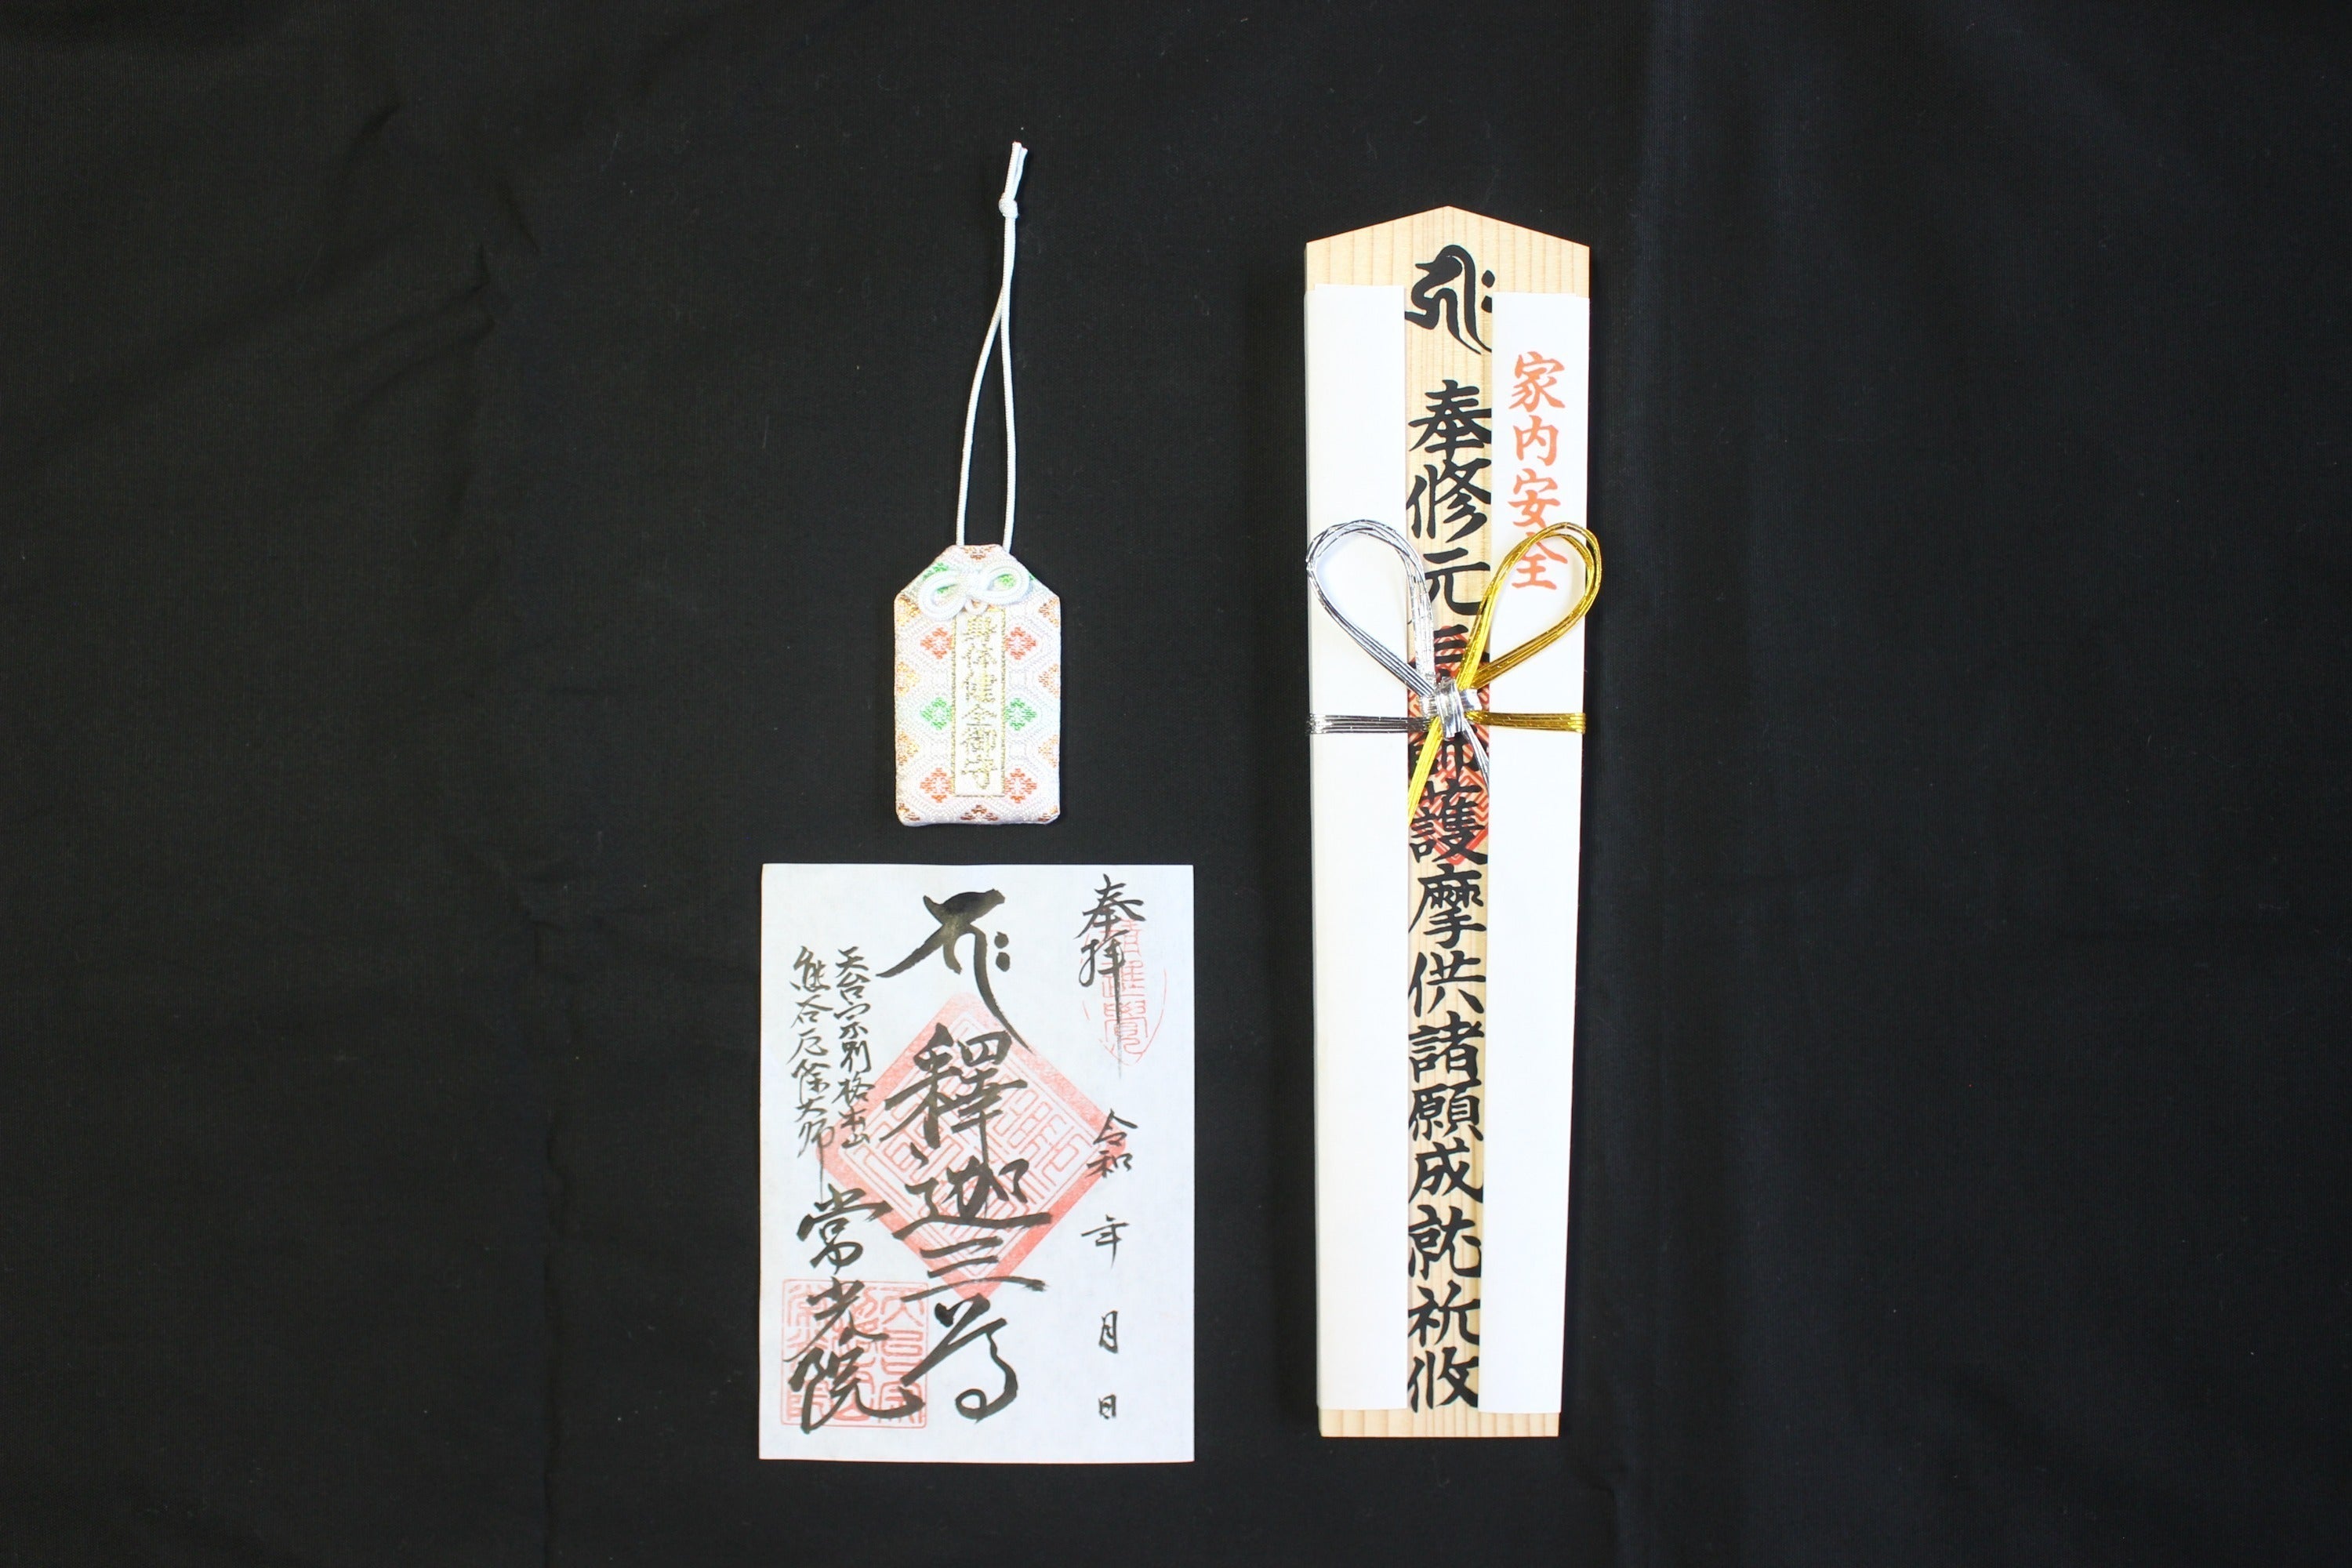 身体健全御守
奉拝
令和 年 月 日
釋迦三尊
天台宗別格本山
熊谷厄除大師
常光院
家内安全
奉修元三大師護摩供諸願成就祈攸